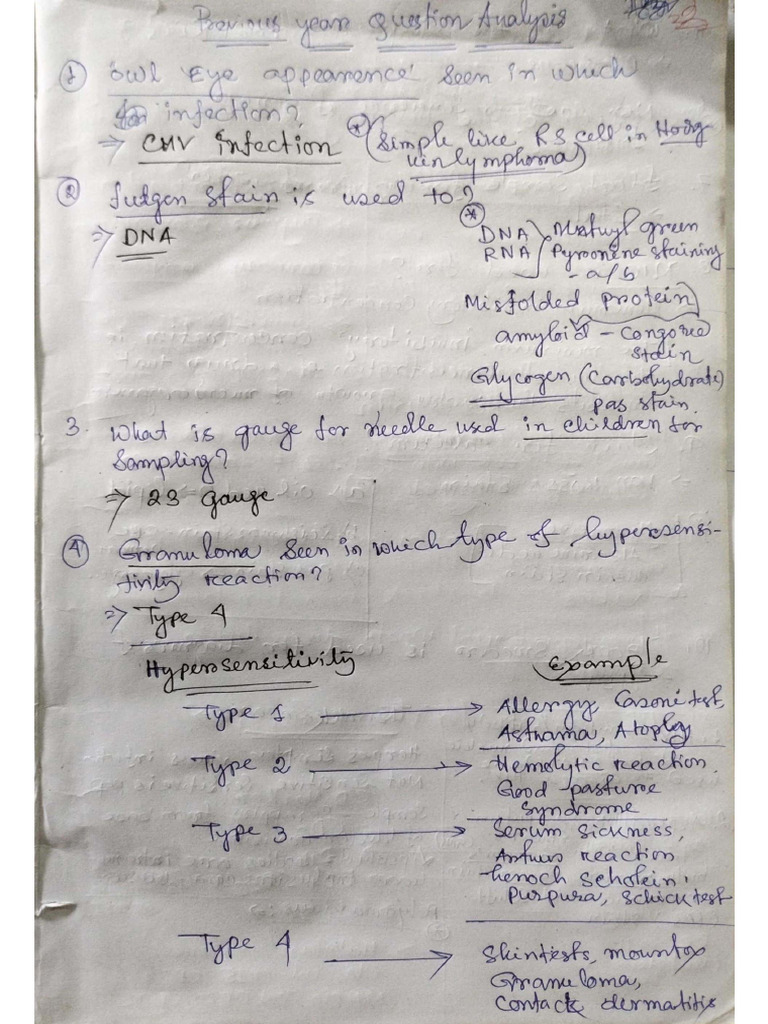 Previous year Question Analysis
① Owl Eye appearence seen in which
infection?
⇒ CMV infection (* (Simple like RS cell in Hodg
kin lymphoma)
② futgen Stain is used to?
⇒ DNA
* DNA Methyl green
RNA Pyronine staining
- a/b
Misfolded protein
amyloid - congored
stain
Glycogen (Carbohydrate)
pas stain.
3. What is gauge for needle used in children for
Sampling?
⇒ 23 Gauge
④ Granuloma seen in which type of hypersensi-
tivity reaction?
⇒ Type 4
Hypersensitivity Example
Type 1 → Allergy, Casoni test,
Asthama, Atophy
Type 2 → Hemolytic reaction.
Good pasture
Syndrome
Type 3 → Serum sickness,
Arthus reaction
henoch scholein
purpura, schick test
Type 4 → Skintests, mountox
Granuloma,
Contack dermatitis